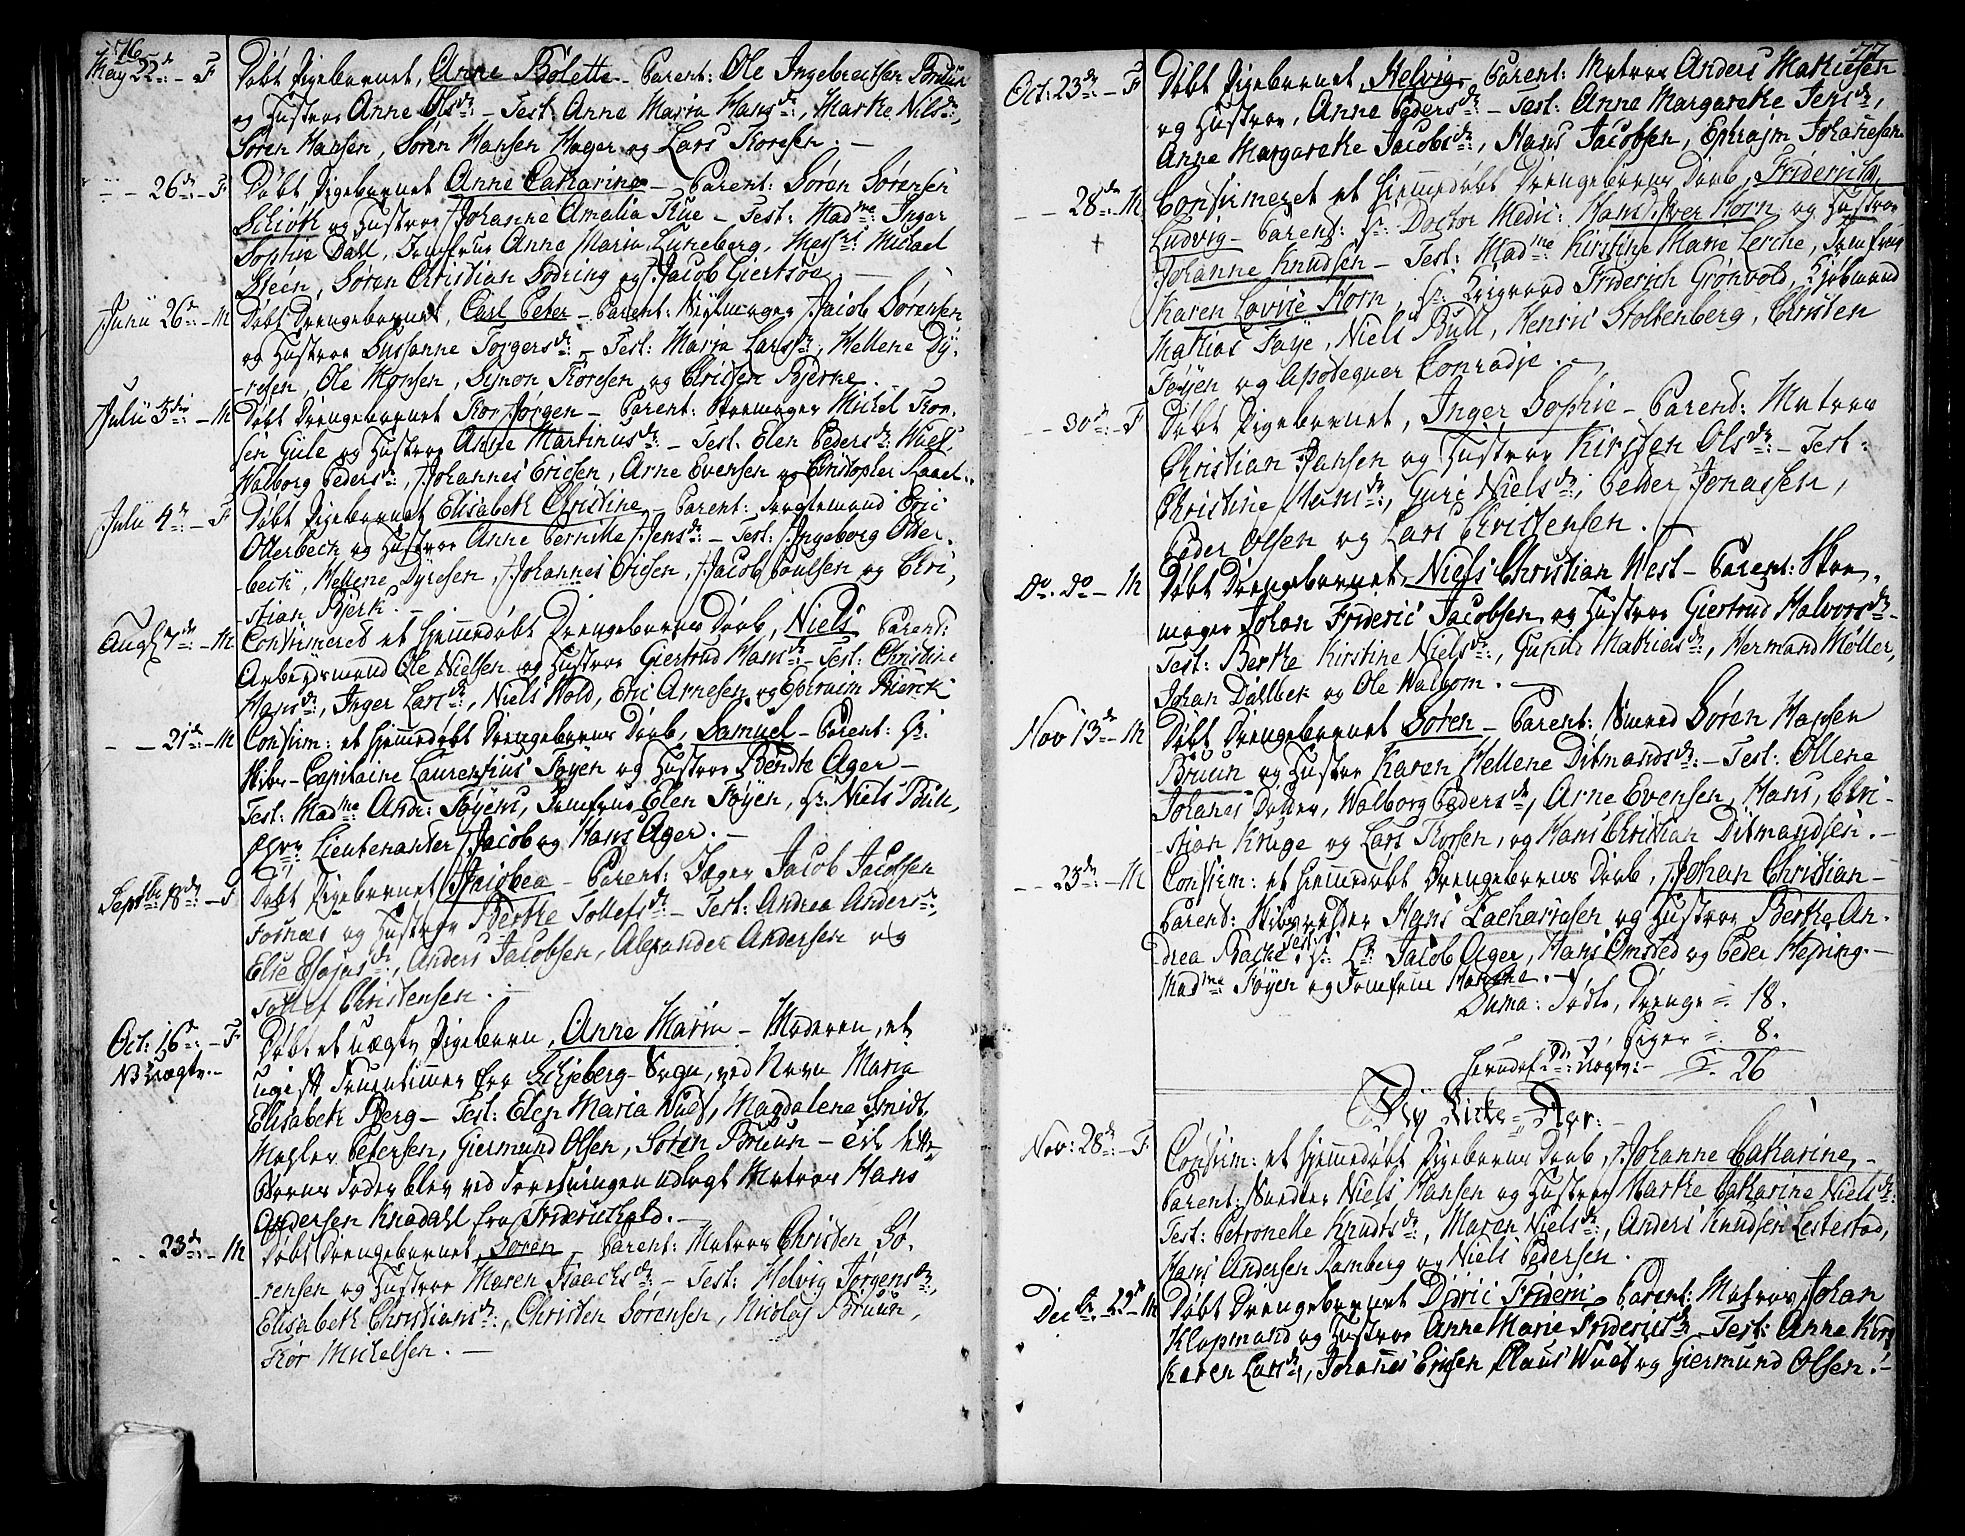 76
May 22de: – F
Døbt Pigebarnet, Anne Bolette – Parent: Ole Ingebretsen Bruun
og Hustroe Anne Olsdr: – Test: Anne Maria Hansdr:, Marthe Nilsdr:,
Søren Hansen, Søren Hansen Hager og Lars Thoresen. –
– – 26de: – F
Døbt Pigebarnet Anne Catharina – Parent: Søren Sørensen
Schiøth og Hustroe Johanne Amalia Thue – Test: Madme: Inger
Sophie Dahl, Jomfrue Anne Maria Luneberg, Messrs Michael
Steen, Søren Christian Sodring og Jacob Giertsøe. –
Junii 26de: – M
Døbt Drengebarnet, Carl Peter – Parent: Jacob Sørensen
og Hustroe Susanne Torgersdr: – Test: Maria Larsdr:, Hellene Dy-
resen, Ole Monsen, Simon Thoresen og Christen Bierke.
Julii 3die: – M
Døbt Drengebarnet Thor Jørgen – Parent: Skoemager Michel Thor-
sen Gule og Hustroe Anne Martinusdr: – Test: Elen Pedersdr: Wuel,
Walborg Pedersdr:, Johannes Ericsen, Arne Evensen og Christopher
Julii 4de: – F
Døbt Pigebarnet Elisabeth Christine – Parent: Eric
Otterbech og Hustroe Anne Pernille Jensdr: – Test: Ingeborg Otter-
bech, Hellene Dyresen, Johannes Ericsen, Jacob Poulsen og Chri-
stian Bierk. –
Augt 7de: – M
Confirmered et hiemmedøbt Drengebarns Daab, Niels Parent:
Arbeydsmand Ole Nielsen og Hustroe Giertrud Hansdr: – Test: Christine
Hansdr:, Inger Larsdr:, Niels Wold, Eric Arnesen og Ephraim Bierck
– – 21de: – M
Confirm: et hiemmedøbt Drengebarns Daab, Samuel – Parent: Hr:
Skibs-Capitaine Laurentius Føyen og Hustroe Benthe Ager –
Test: Madme Andr: Føyens, Jomfrue Elen Føyen, Hr: Niels Bull,
Lieutenanter Jacob og Hans Ager. –
Septbr: 18de: – F
Døbt Pigebarnet Jacobea – Parent: Jæger Jacob Jacobsen
Fornæs og Hustroe Berthe Tollefsdr: – Test: Andrea Andersdr:,
Else Esaiasdr:, Anders Jacobsen, Alexander Andersen og
Tollef Christensen. –
Oct: 16de: – F
NB uægte. –
Døbt et uægte Pigebarn, Anne Maria – Moderen, et
ugift Fruentimmer fra Schjeberg Sogn, ved Navn Maria
Elisabeth Berg – Test: Elen Maria Wuel, Magdalene Smidt,
Petersen, Giermund Olsen, Søren Bruun – Til dette
Barns Fader blev ved Forretningen udlagt Matros Hans
Andersen Knadahl fra Friderichshald. –
– – 23de: – M
Døbt Drengebarnet Soren – Parent: Matros Christen Sø-
rensen og Hustroe Maren Isaachsdr: – Test: Helvig Jørgensdr:,
Elisabeth Christiansdr:, Christen Sørensen, Nicolay Bruun,
Thor Michelsen. –
77
Oct: 23de – F
Døbt Pigebarnet Helvig – Parent: Matros Anders Mathiesen
og Hustroe, Anne Pedersdr: – Test: Anne Margarethe Jensdr:,
Anne Margarethe Jacobsdr:, Hans Jacobsen, Ephraim Johanesen
– – 28de: M
+
Confirmeret et hiemmedøbt Drengebarns Daab, Friderich
Ludvig – Parent: Hr: Doctor Medic: Hans Iver Horn og Hustroe
Johanne Knudsen – Test: Madme Kirstine Marie Lerche, Jomfrue
Karen Lovvie Horn, Hr: Friderich Grönvold, Kjøbmænd
Mathias Faye, Niels Bull, Henric Stoltenberg, Christen
Føyen og Apotequer Conradje. –
– – 30de: – F
Døbt Pigebarnet, Inger Sophie – Parent: Matros
Christian Jansen og Hustroe Kirsten Olsdr: – Test:
Christine Hansdr:, Guri Nielsdr:, Peder Jonassen,
Peder Olsen og Lars Christensen. –
Do. Do – M
Døbt Drengebarnet, Niels Christian West – Parent: Skoe-
mager Johan Frideric Jacobsen og Hustroe Giertrud Halvorsdr: –
Test: Berthe Kirstine Nielsdr:, Gunild Mathiasdr:, Hermand Møller,
Johan Dallbek og Ole Walbom. –
Nov 13de – M
Døbt Drengebarnet Søren – Parent: Smeed Søren Hansen
Bruun og Hustroe Karen Hellene Ditmandsdr: – Test: Ollene
Johanes Datter, Walborg Pedersdr, Arne Evensen, Hans, Chri-
stian Kruge og Lars Thorsen, og Hans Christian Ditmandsen. –
– – 23de: – M
Confirm: et hiemmedøbt Drengebarns Daab, Johan Christian –
Parent: Skibsrehder Hans Zachariasen og Hustroe Berthe An-
drea Bache, Test: Hr: Lt: Jacob Ager, Hans Omsted og Peder Hesring. –
Madme Føyen og Jomfrue Hanche. –
Suma: Fødte, Drenge = 18.
" Piger = 8.
herudaf 2de: uægte: – S. 26
Ny Kirke-Aar: –
Nov: 28de: – F
Confirm: et hiemmedøbt Pigebarns Daab, Johanne Catharine, –
Parent: Snedker Niels Hansen og Hustroe Marthe Catharine Nielsdr:
Test: Petronelle Knudsdr:, Maren Nielsdr:, Anders Knudsen Lestestad,
Hans Andersen Ramberg og Niels Pedersen.
Decbr: 29de – M
Døbt Drengebarnet Dideric Frideric – Parent: Matros Johan
Klopmand og Hustroe Anne Marie Fridericsdr – Test: Anne
Karen Larsdr, Johanes Ericsen Claus Wuel og Giermund Olsen. –